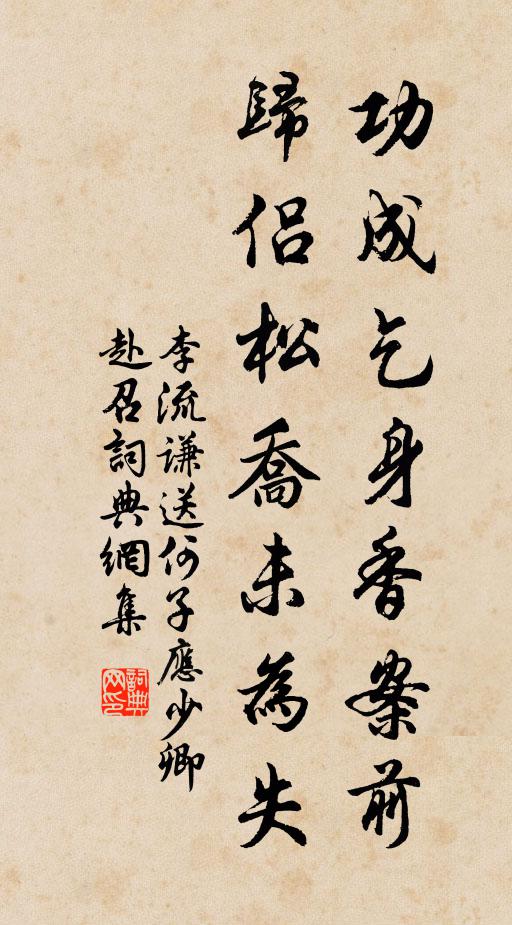 功成乞身香案前
歸侶松喬未為失
李流謙送何子應少卿
赴召詞典網集
詞典網印